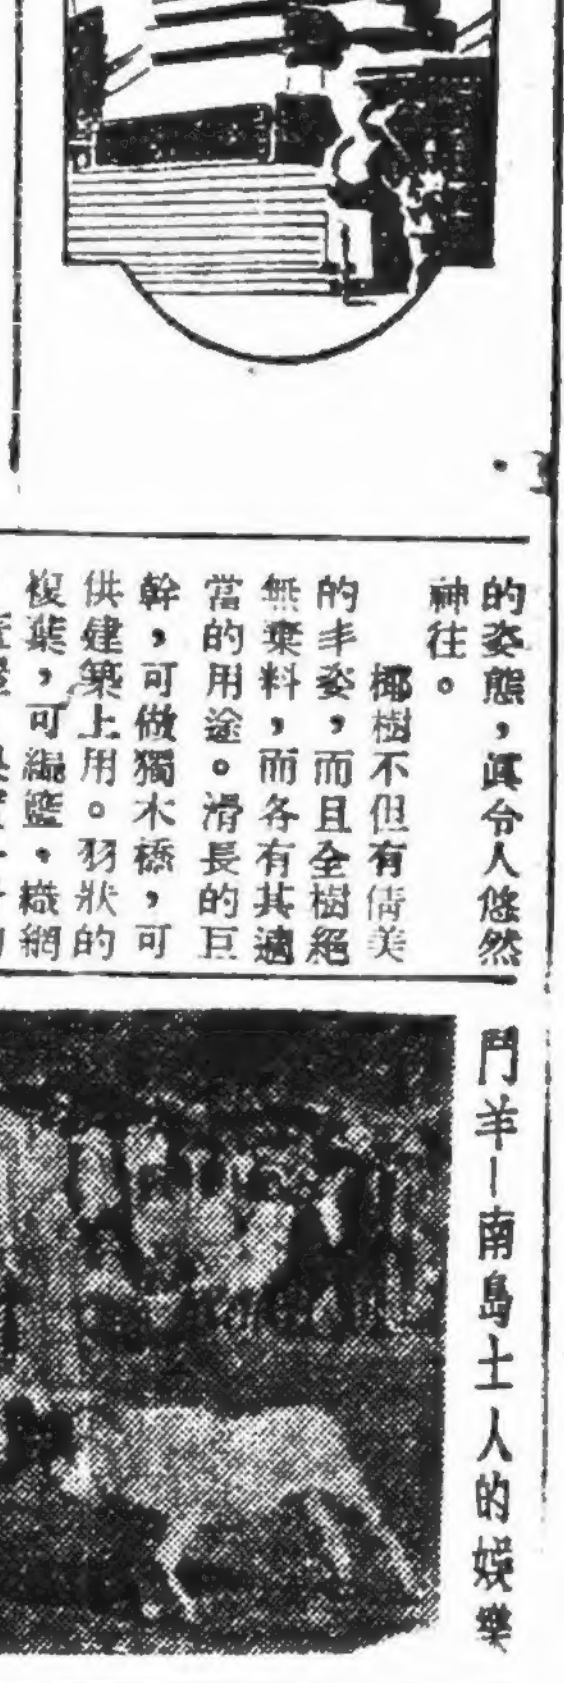 的姿態，眞令人悠然
神往。
椰樹不但有倩美
的丰姿，而且全樹絕
無棄料，而各有其適
當的用途。滑長的巨
幹，可做獨木橋，可
供建築上用。羽狀的
複葉，可編籃。織網
鬥羊—南島土人的娛樂